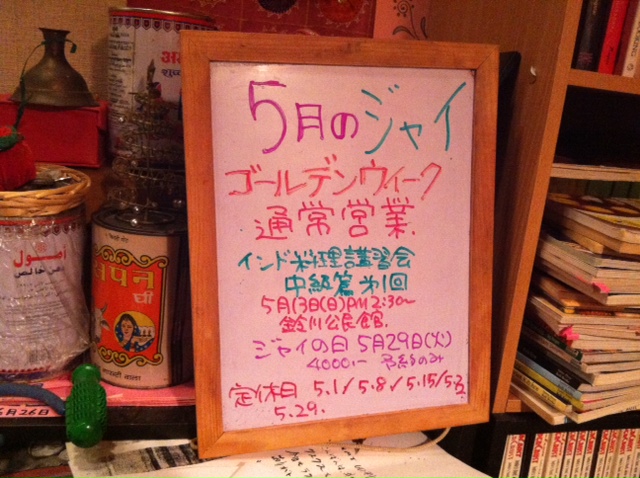 5月のジャイ
ゴールデンウィーク
通常営業.
インド料理講習会
中級篇 第1回
5月13日(日)PM2:30〜
鈴川公民館.
ジャイの日 5月29日(火)
4000ー 予約のみ
定休日 5.1/5.8/5.15/5.22
5.29.
امول
سپن
گھی
6月26日